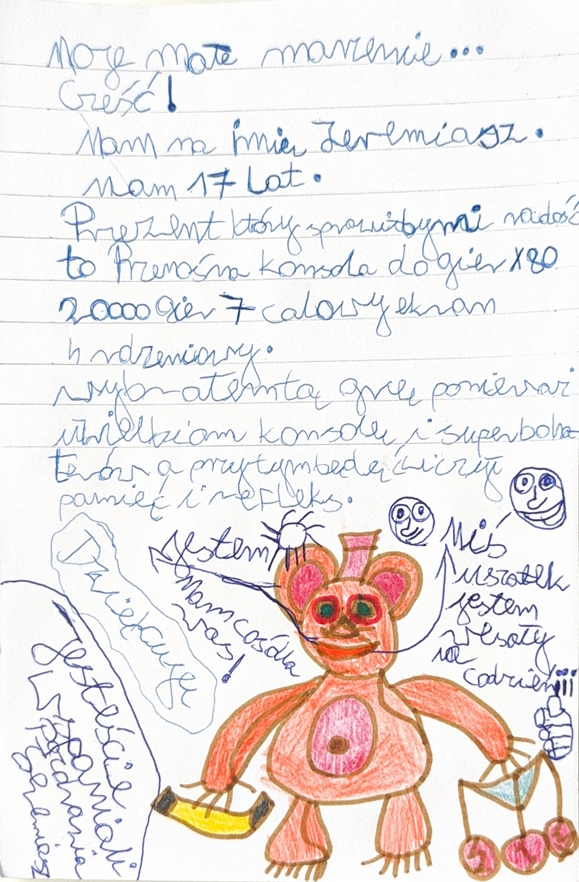 Moje małe marzenie...
Cześć!
Mam na imię Jeremiasz.
Mam 17 Lat.
Prezent który sprawiłbymi radość
to Przenośna konsola do gier X80
20000 Gier 7 calowy ekran
4 rdzeniowy.
wybrałem tą grę ponieważ
uwielbiam konsolę i superboha-
terów a przytym będę ćwiczył
pamięć i refleks.
Dziękuję
Jestem
Mam coś dla
was!
Miś
uszatek
jestem
wesoły
na
Codzień!!!
Jesteście
Wspaniali
Pozdrawia
Jeremiasz